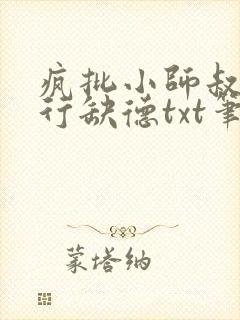 疯批小师叔
行缺德txt笔
蒙塔纳